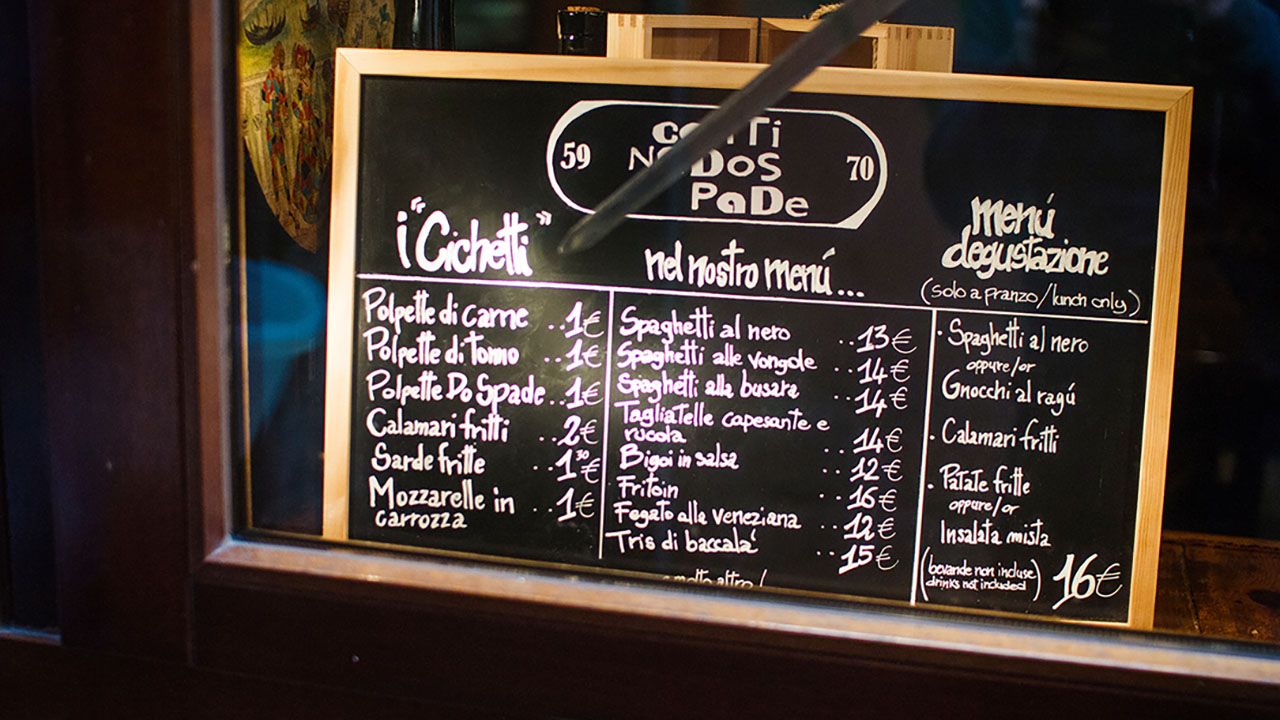 59
70
DoS
PaDe
i "Cichetti"
Polpette di Carne ..1€
Polpette di Tonno ..1€
Polpette Do Spade ..1€
Calamari fritti ..2€
Sarde fritte ..1³⁰€
Mozzarelle in ..1€
carrozza
nel nostro menú...
Spaghetti al nero ..13€
Spaghetti alle vongole ..14€
Spaghetti alla busara ..14€
Tagliatelle capesante e
rucola ..14€
Bigoi in salsa ..12€
Fritoin ..16€
Fegato alla veneziana ..12€
Tris di baccala' ..15€
molto altro!
menú
degustazione
(solo a pranzo/lunch only)
· Spaghetti al nero
oppure/or
Gnocchi al ragú
· Calamari fritti
· Patate fritte
oppure/or
Insalata mista
(bevande non incluse
drinks not included) 16€